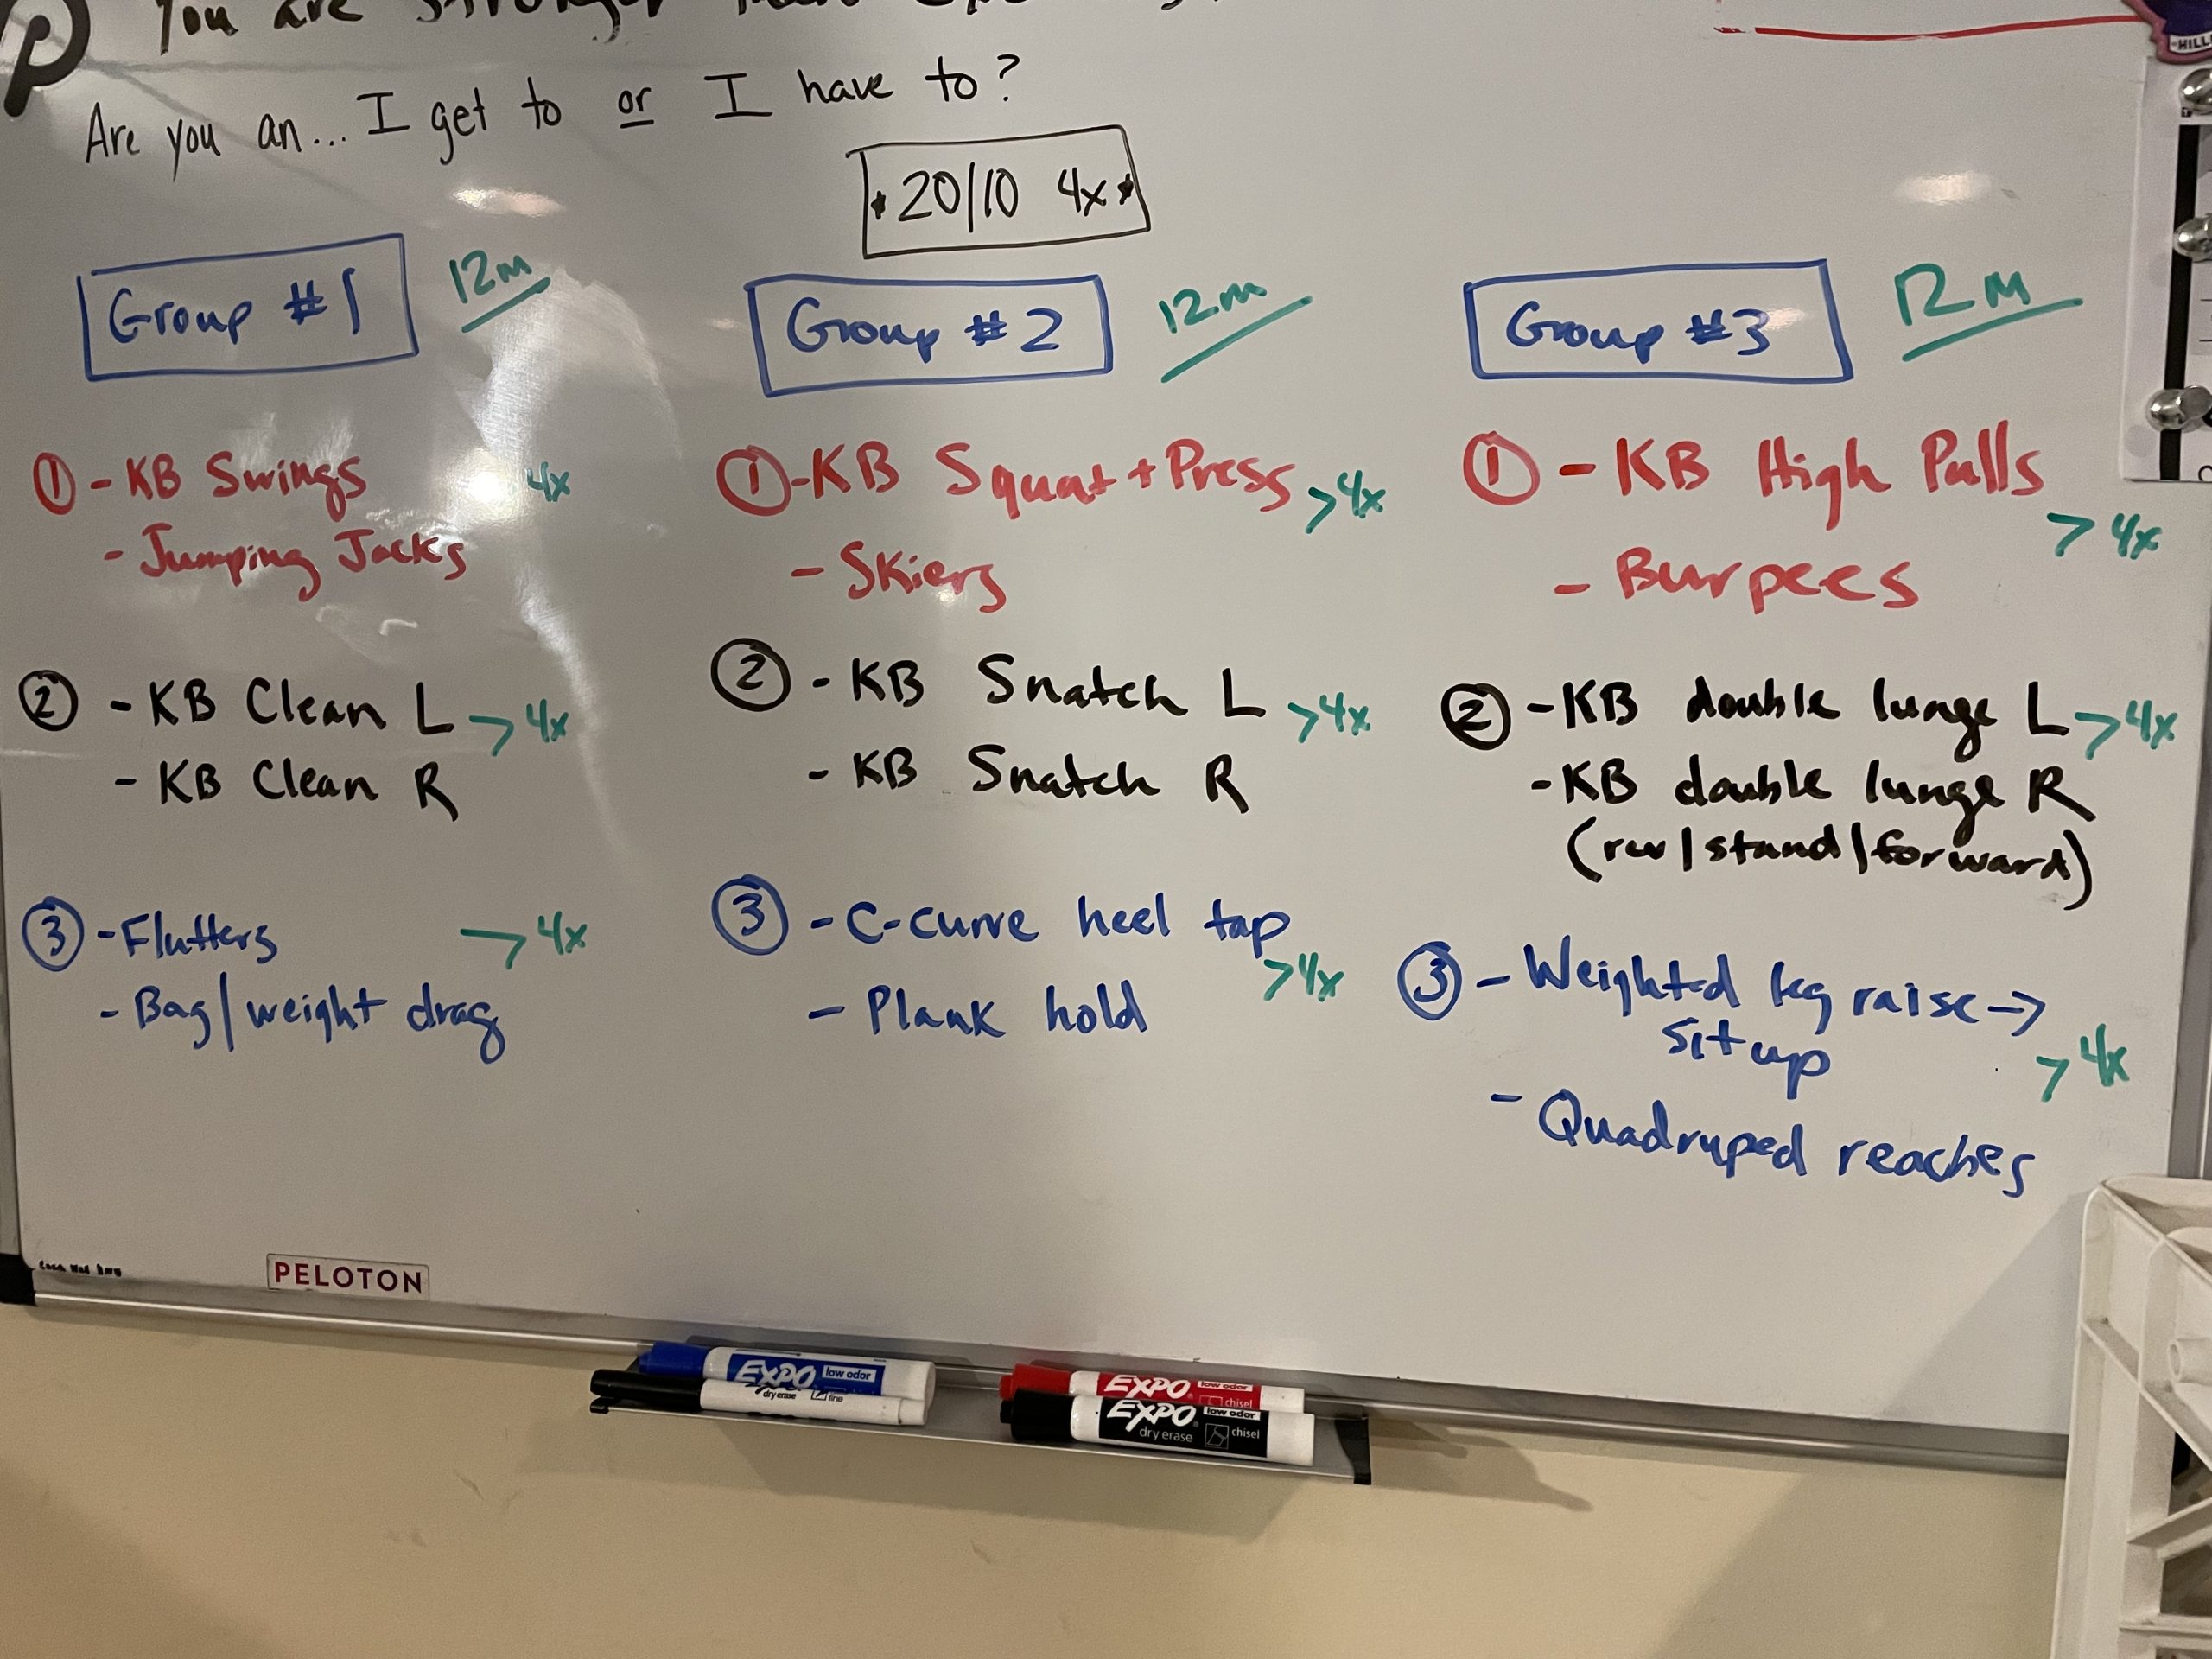 You are stronger
Are you an... I get to or I have to?
* 20/10 4x *
Group #1 12m
① - KB Swings 4x
- Jumping Jacks
② - KB Clean L > 4x
- KB Clean R
③ - Flutters > 4x
- Bag/weight drag
Group #2 12m
① - KB Squat + Press > 4x
- Skiers
② - KB Snatch L > 4x
- KB Snatch R
③ - C-curve heel tap
> 4x
- Plank hold
Group #3 12m
① - KB High Pulls
> 4x
- Burpees
② - KB double lunge L > 4x
- KB double lunge R
(rev/stand/forward)
③ - Weighted leg raise →
sit up
> 4x
- Quadruped reaches
PELOTON
EXPO low odor
dry erase fine
EXPO low odor
chisel
EXPO low odor
dry erase chisel
HILL